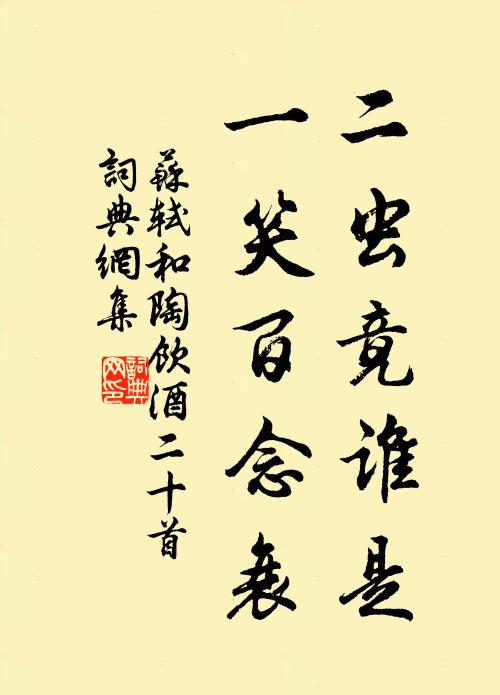 二虫竟谁是
一笑百念衰
蘇軾和陶飲酒二十首
詞典網集
詞典
网印